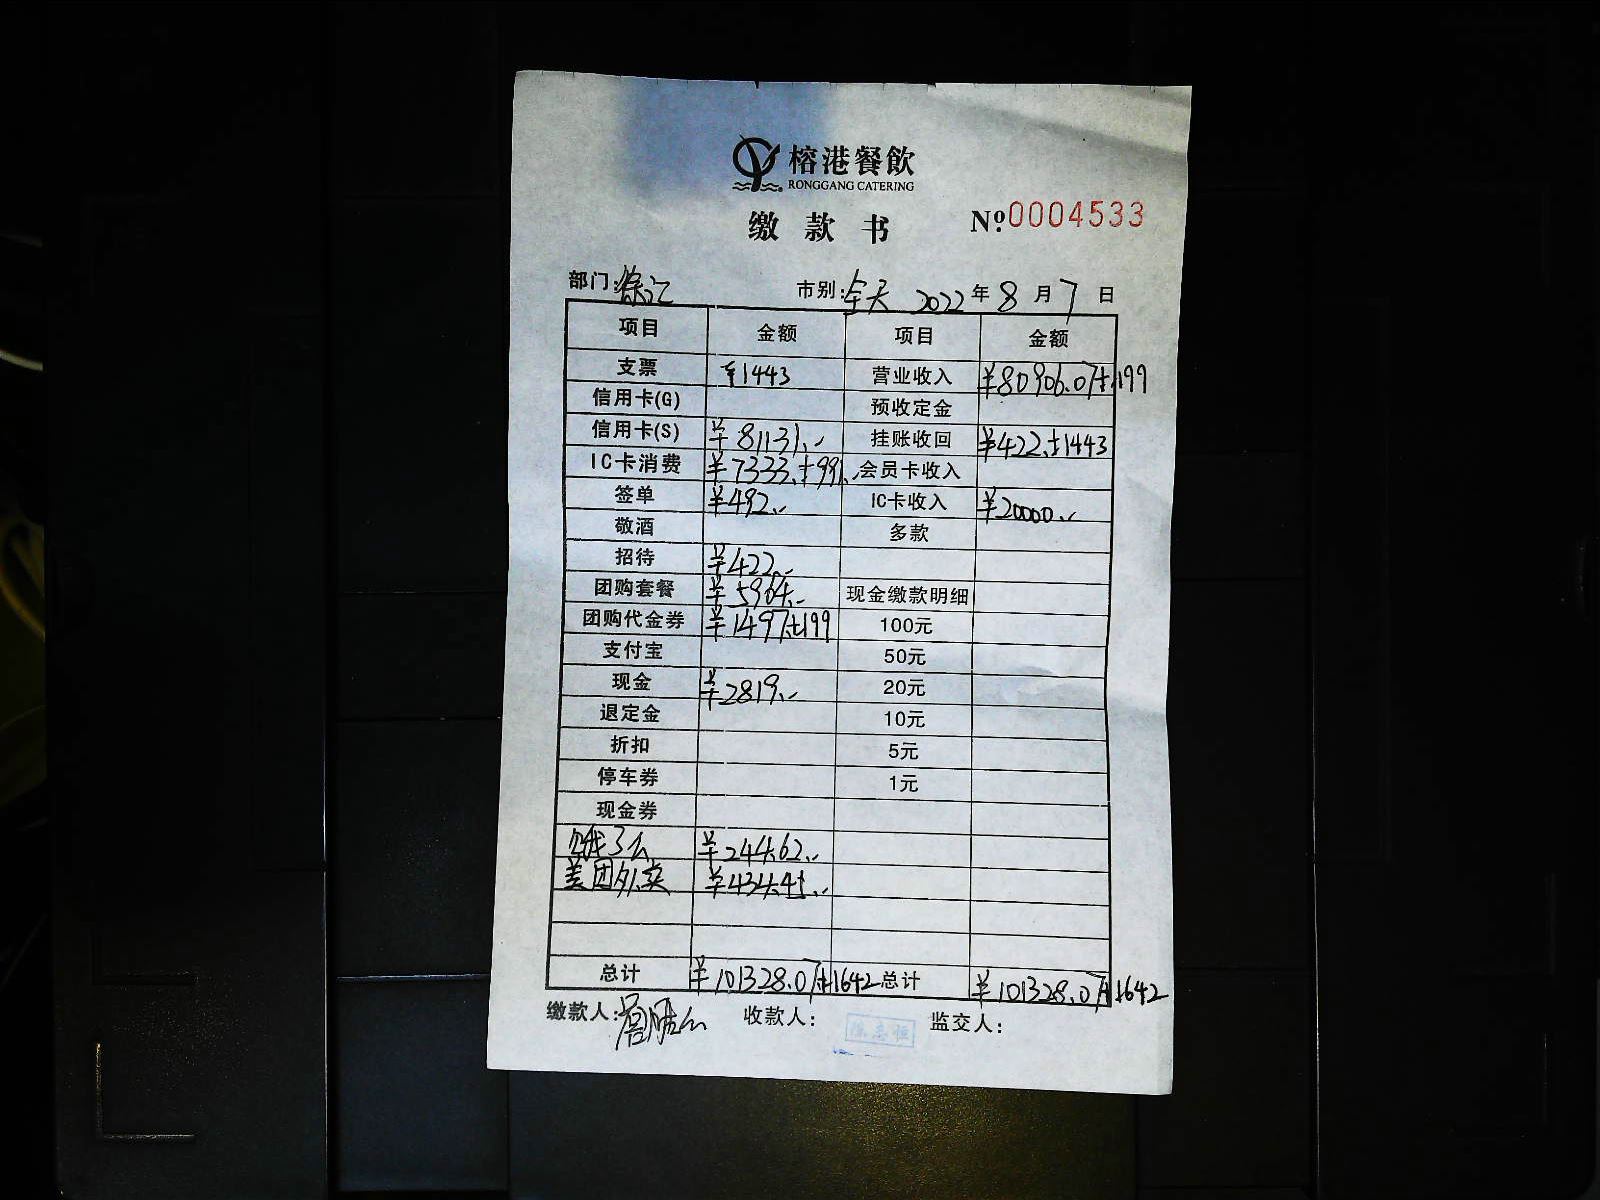 榕港餐飲
RONGGANG CATERING
缴款书 №0004533
部门:徐汇 市别:全天 2022年8月7日
项目 金额 项目 金额
支票 ¥1443 营业收入 ¥80906.07+199
信用卡(G) 预收定金
信用卡(S) ¥81131.- 挂账收回 ¥422.+1443
IC卡消费 ¥7333.+991.- 会员卡收入
签单 ¥492.- IC卡收入 ¥20000.-
敬酒 多款
招待 ¥422.-
团购套餐 ¥5964.- 现金缴款明细
团购代金券 ¥1497.+199 100元
支付宝 50元
现金 ¥2819.- 20元
退定金 10元
折扣 5元
停车券 1元
现金券
饿了么 ¥244.62.-
美团外卖 ¥434.45.-
总计 ¥101328.07+1642 总计 ¥101328.07+1642
缴款人: 收款人: 监交人: